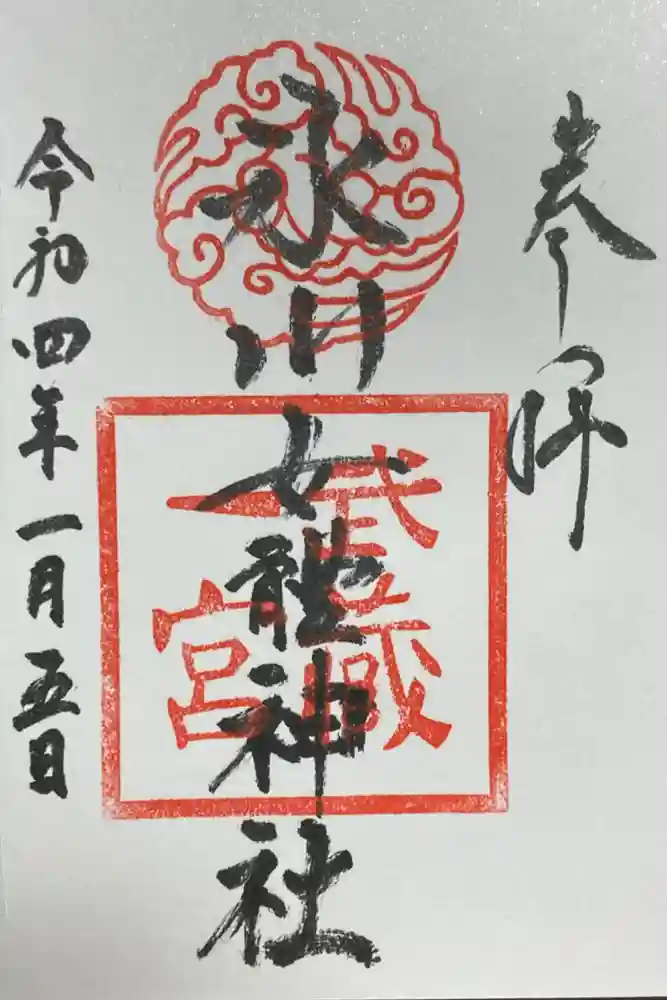 参拝
氷川女體神社
武蔵
一宮
令和四年一月五日